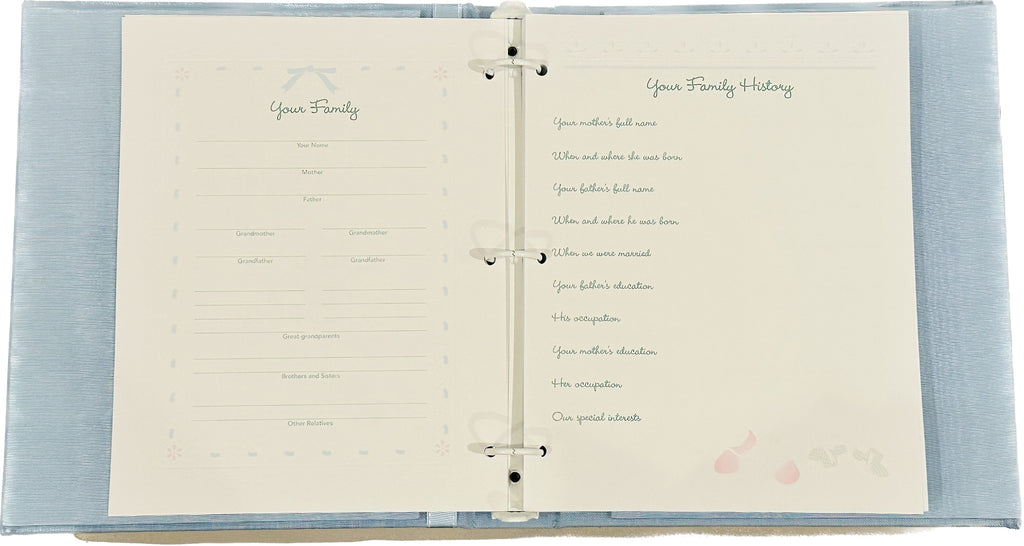 Your Family
Your Name
Mother
Father
Grandmother Grandmother
Grandfather Grandfather
Great-grandparents
Brothers and Sisters
Other Relatives
Your Family History
Your mother's full name
When and where she was born
Your father's full name
When and where he was born
When we were married
Your father's education
His occupation
Your mother's education
Her occupation
Our special interests